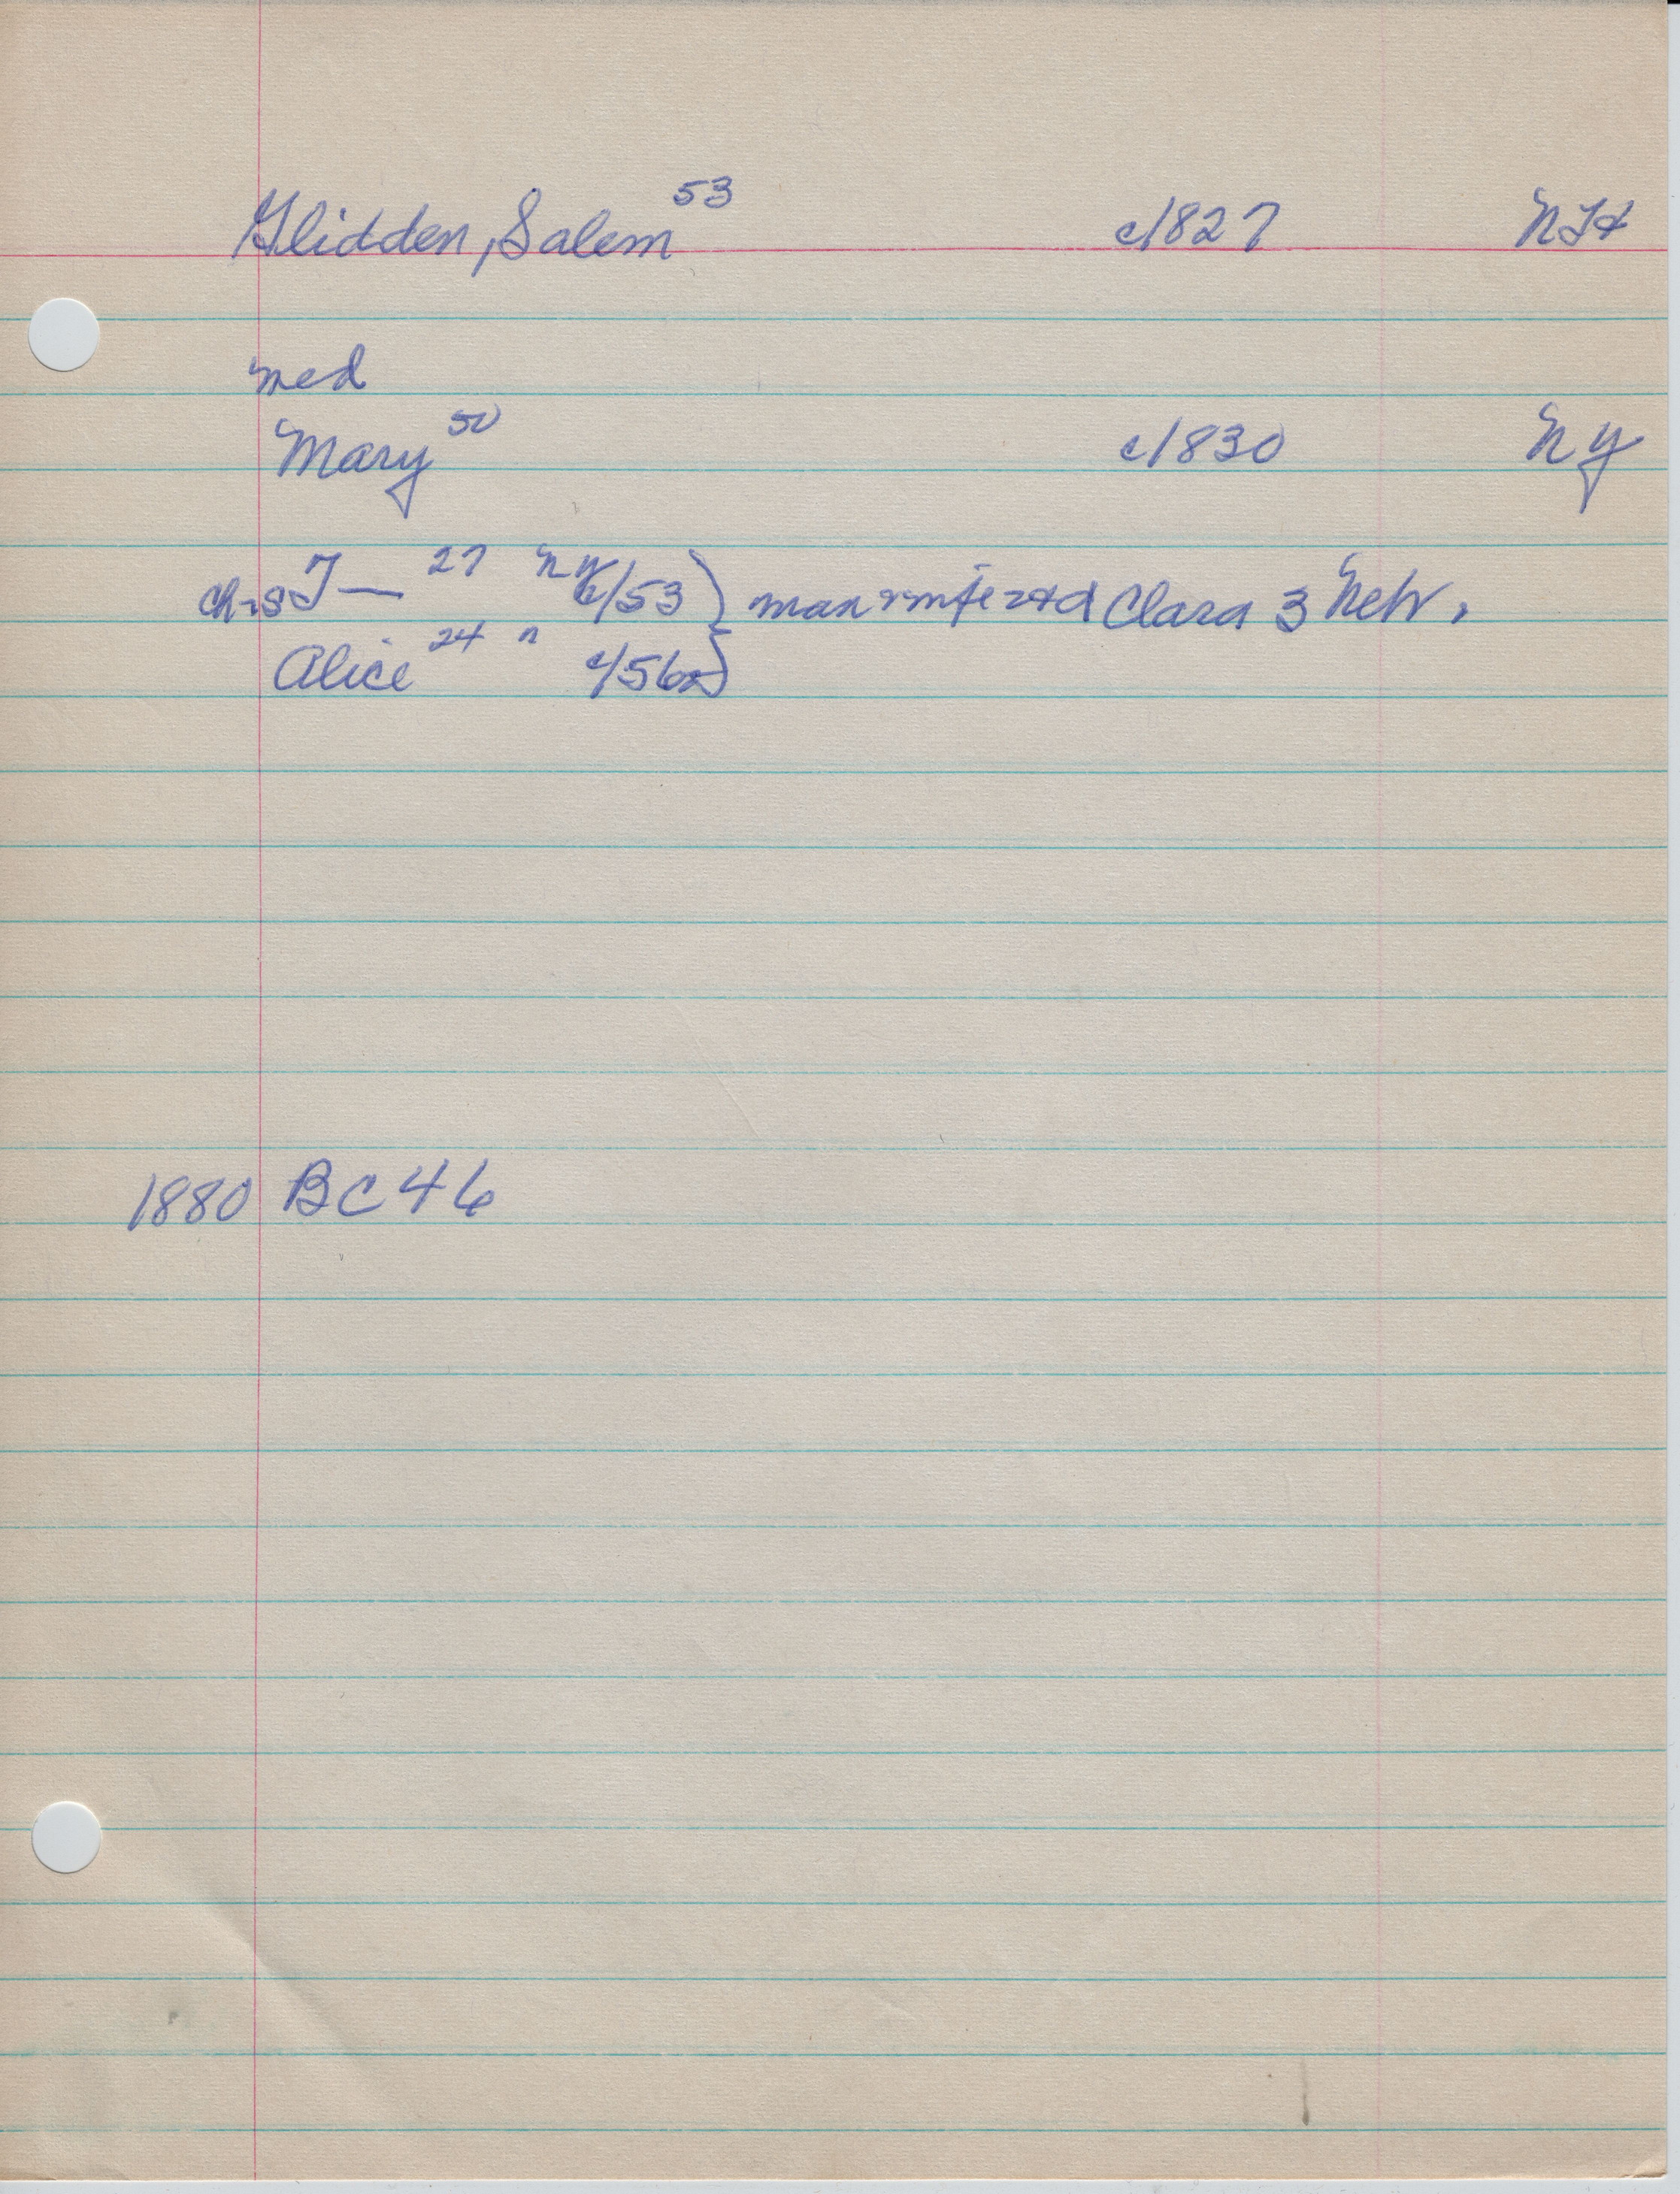 Glidden, Salem 53 c/1827 NH
med
Mary 50 c/1830 NY
chrs T— 27 NY c/53
man & wife & dd Clara 3 Nebr.
Alice 24 " c/56
1880 BC 46